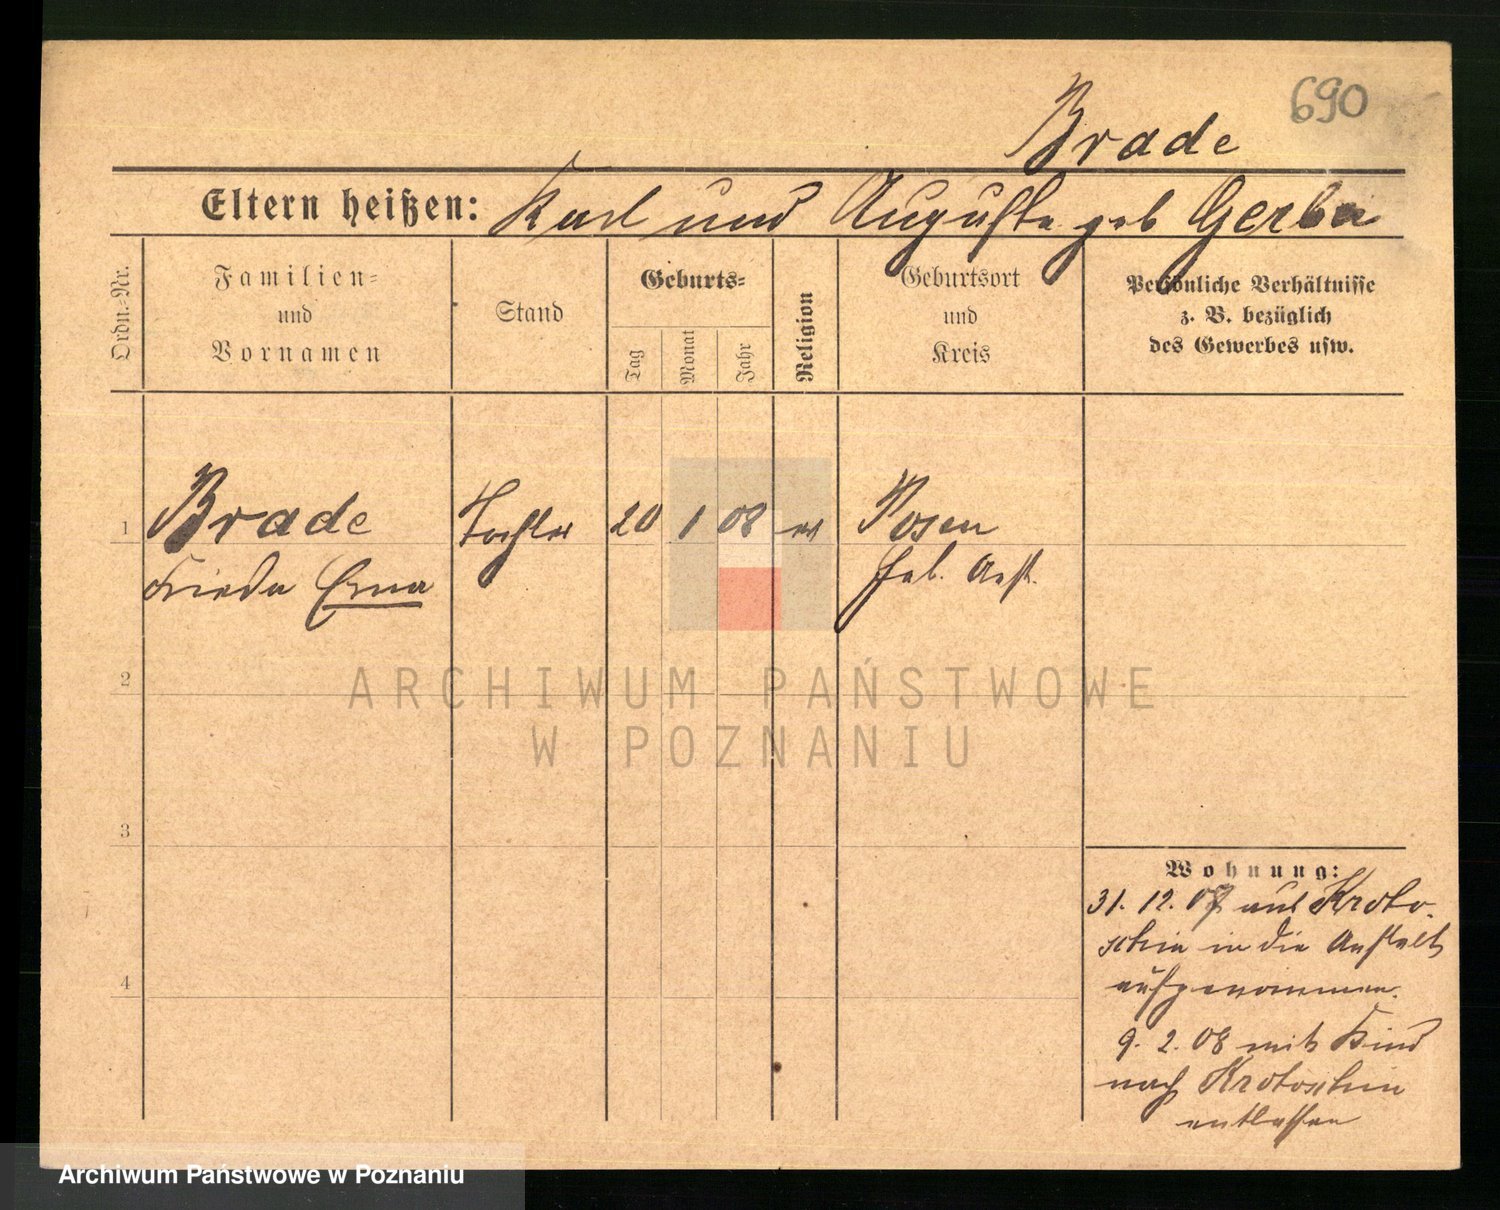 690
Brade
Eltern heißen: Karl und Auguste geb Gerber
Ordn.=Nr.
Familien=
und
Vornamen
Stand
Geburts=
Tag
Monat
Jahr
Religion
Geburtsort
und
Kreis
Persönliche Verhältnisse
z. B. bezüglich
des Gewerbes usw.
1 Brade Tochter 20 1 08 ev Posen
Frieda Erna Heb. Anst.
2
ARCHIWUM PAŃSTWOWE
W POZNANIU
3
4
Wohnung:
31. 12. 07 aus Kroto-
schin in die Anstalt
aufgenommen.
9. 2. 08 mit Kind
nach Krotoschin
entlassen
Archiwum Państwowe w Poznaniu